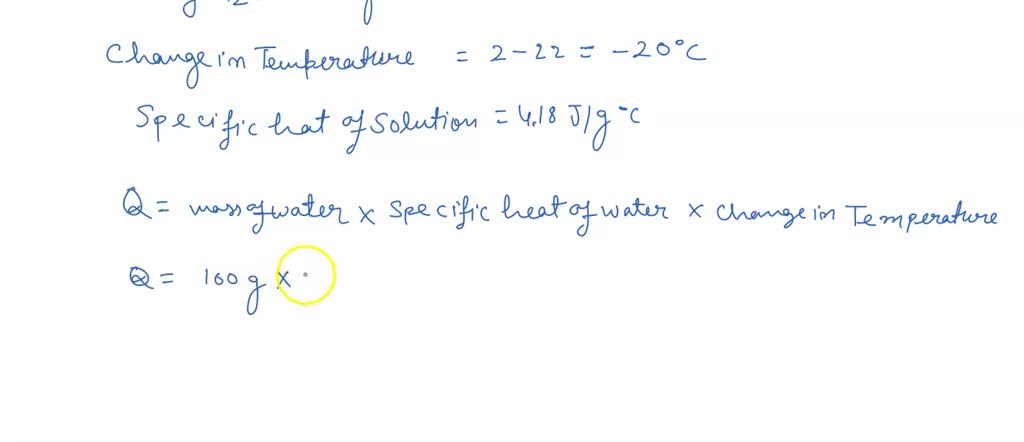 Change in Temperature = 2 - 22 = -20°C
Specific hat of Solution = 4.18 J/g °C
Q = mass of water x Specific heat of water x Change in Temperature
Q = 100 g x